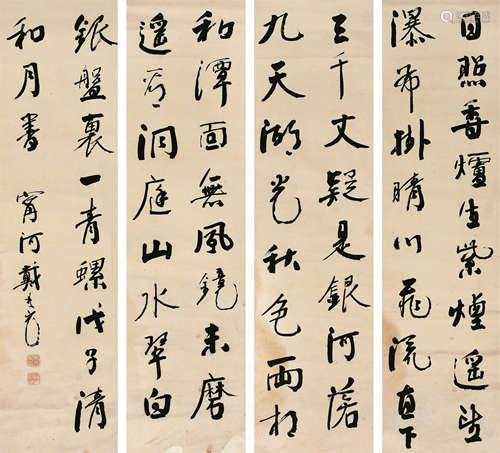 日照香爐生紫煙遙望
瀑布掛晴川飛流直下
三千丈疑是銀河落
九天湖光秋色兩相
和潭面無風鏡未磨
遙看洞庭山水翠白
銀盤裏一青螺戊子清
和月書 甯河戴彬元